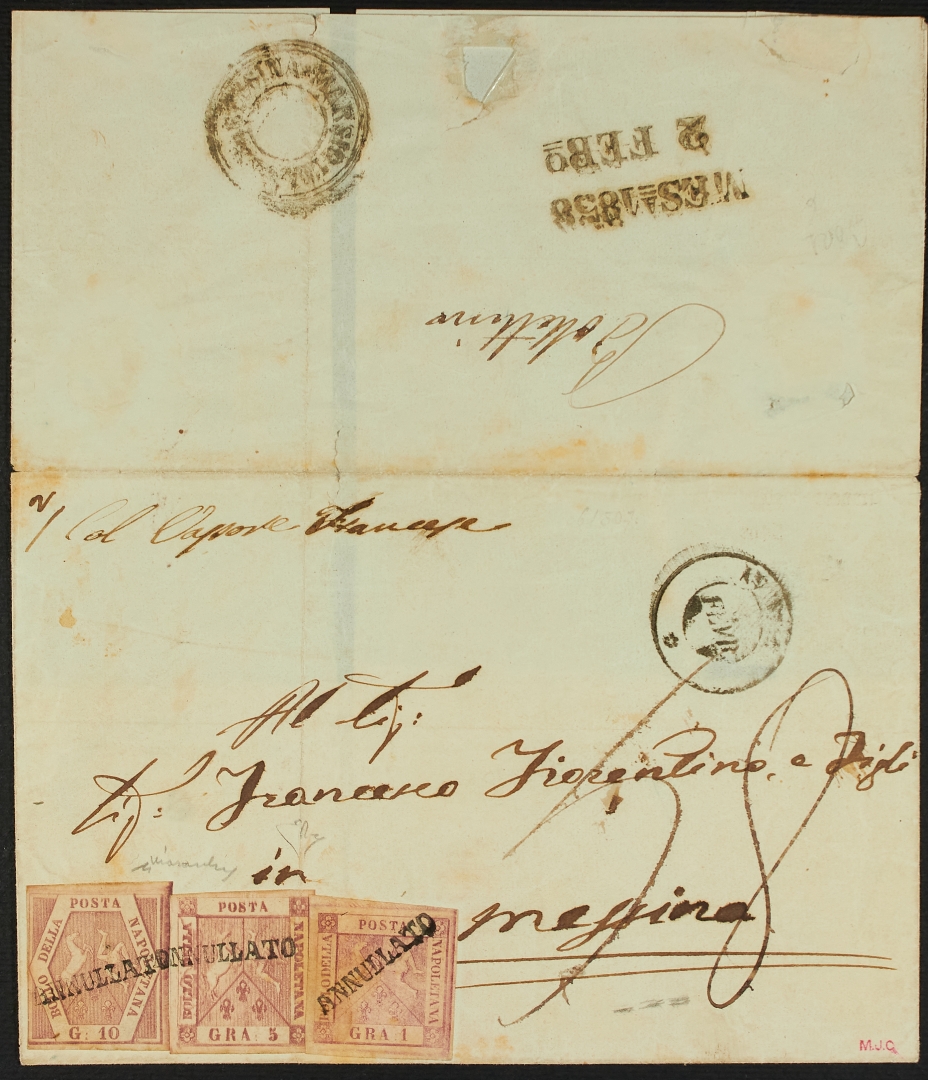 2 FEBº
MESª 1858
Bolettino
Col Vapore Francese
Al Sig:
Sig: Francesco Fiorentino, e Figli
in
Messina
38
POSTA NAPOLETANA
BOLLO DELLA
G. 10
ANNULLATO
POSTA NAPOLETANA
BOLLO DELLA
GRA. 5
ANNULLATO
POSTA NAPOLETANA
BOLLO DELLA
GRA 1
ANNULLATO
M.J.C.